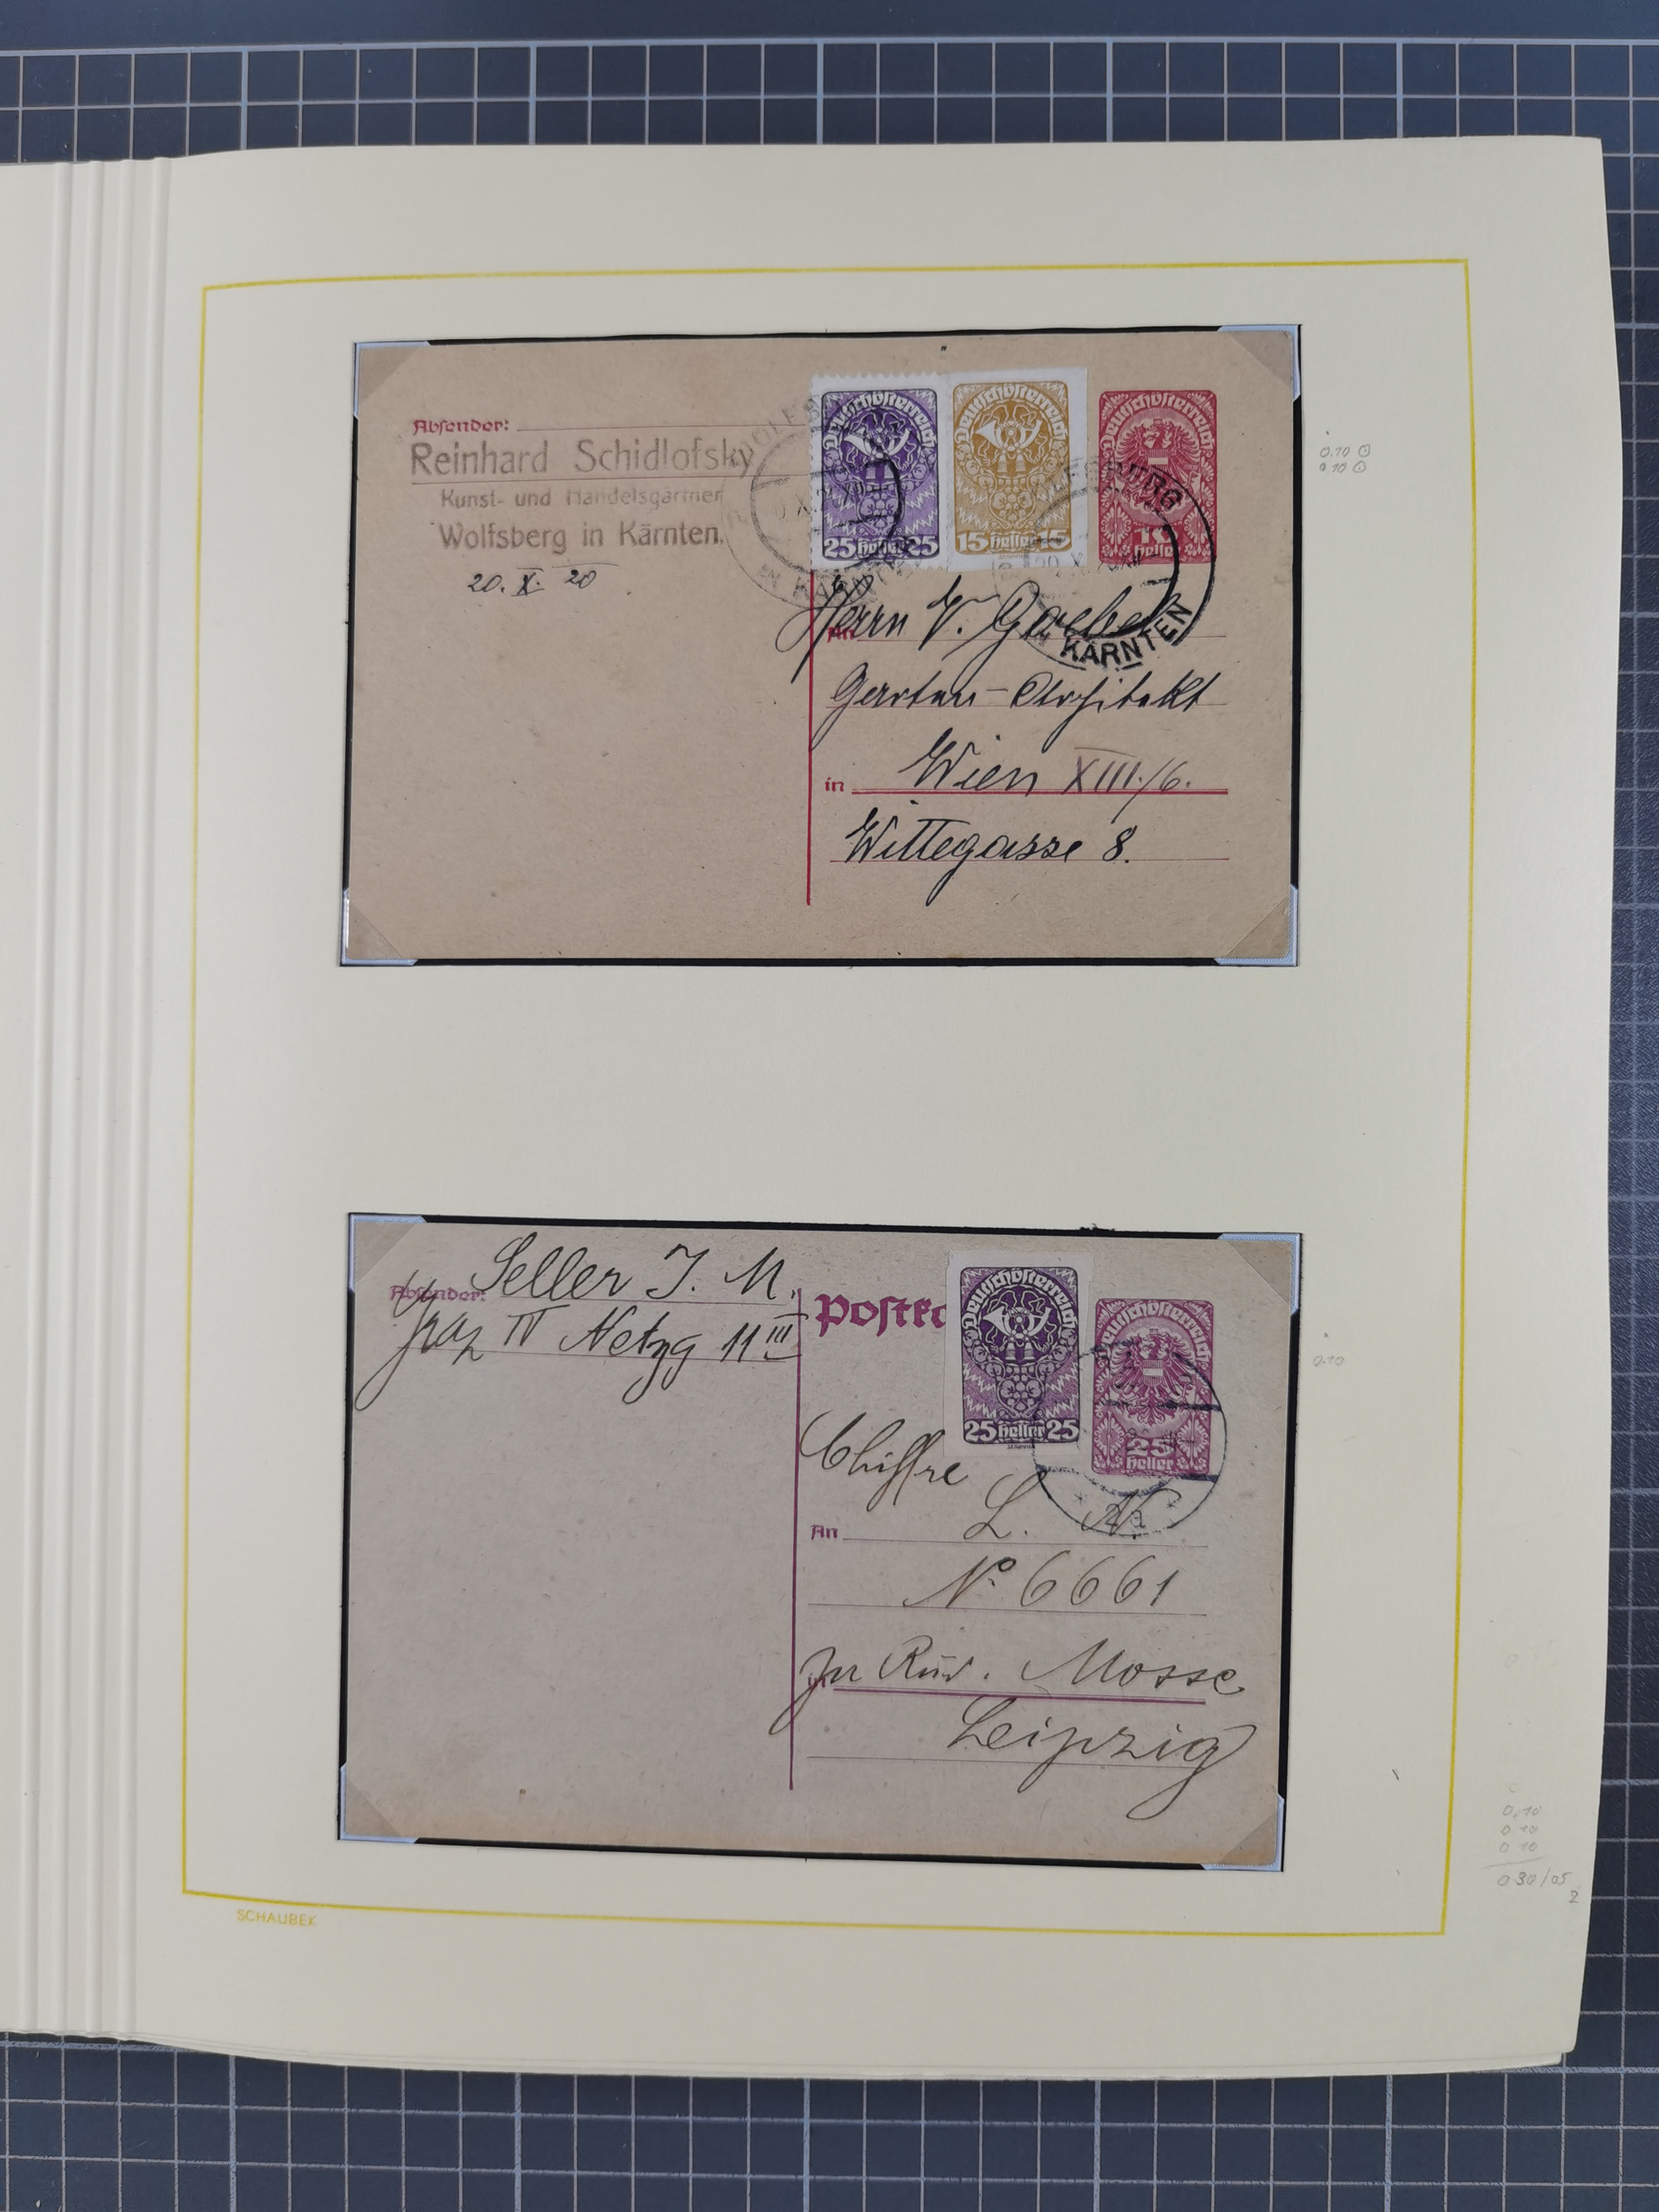 Absender:
Reinhard Schidlofsky
Kunst- und Handelsgärtner
Wolfsberg in Kärnten.
20. X. 20
Deutschösterreich
25 heller 25
Deutschösterreich
15 heller 15
Deutschösterreich
10
heller
IN KÄRNTEN
KÄRNTEN
An
Herrn V. Goebel
Garten-Architekt
in Wien XIII./6.
Wittegasse 8.
0.10
0.10
Absender:
Seller J. M.
Graz IV Netzg 11 III
Postka
Deutschösterreich
25 heller 25
Deutschösterreich
25
heller
Chiffre
An L. N.
No 6661
in
Rud. Mosse
Leipzig
0.10
0,10
0 10
0 10
0 30/05
2
SCHAUBEK